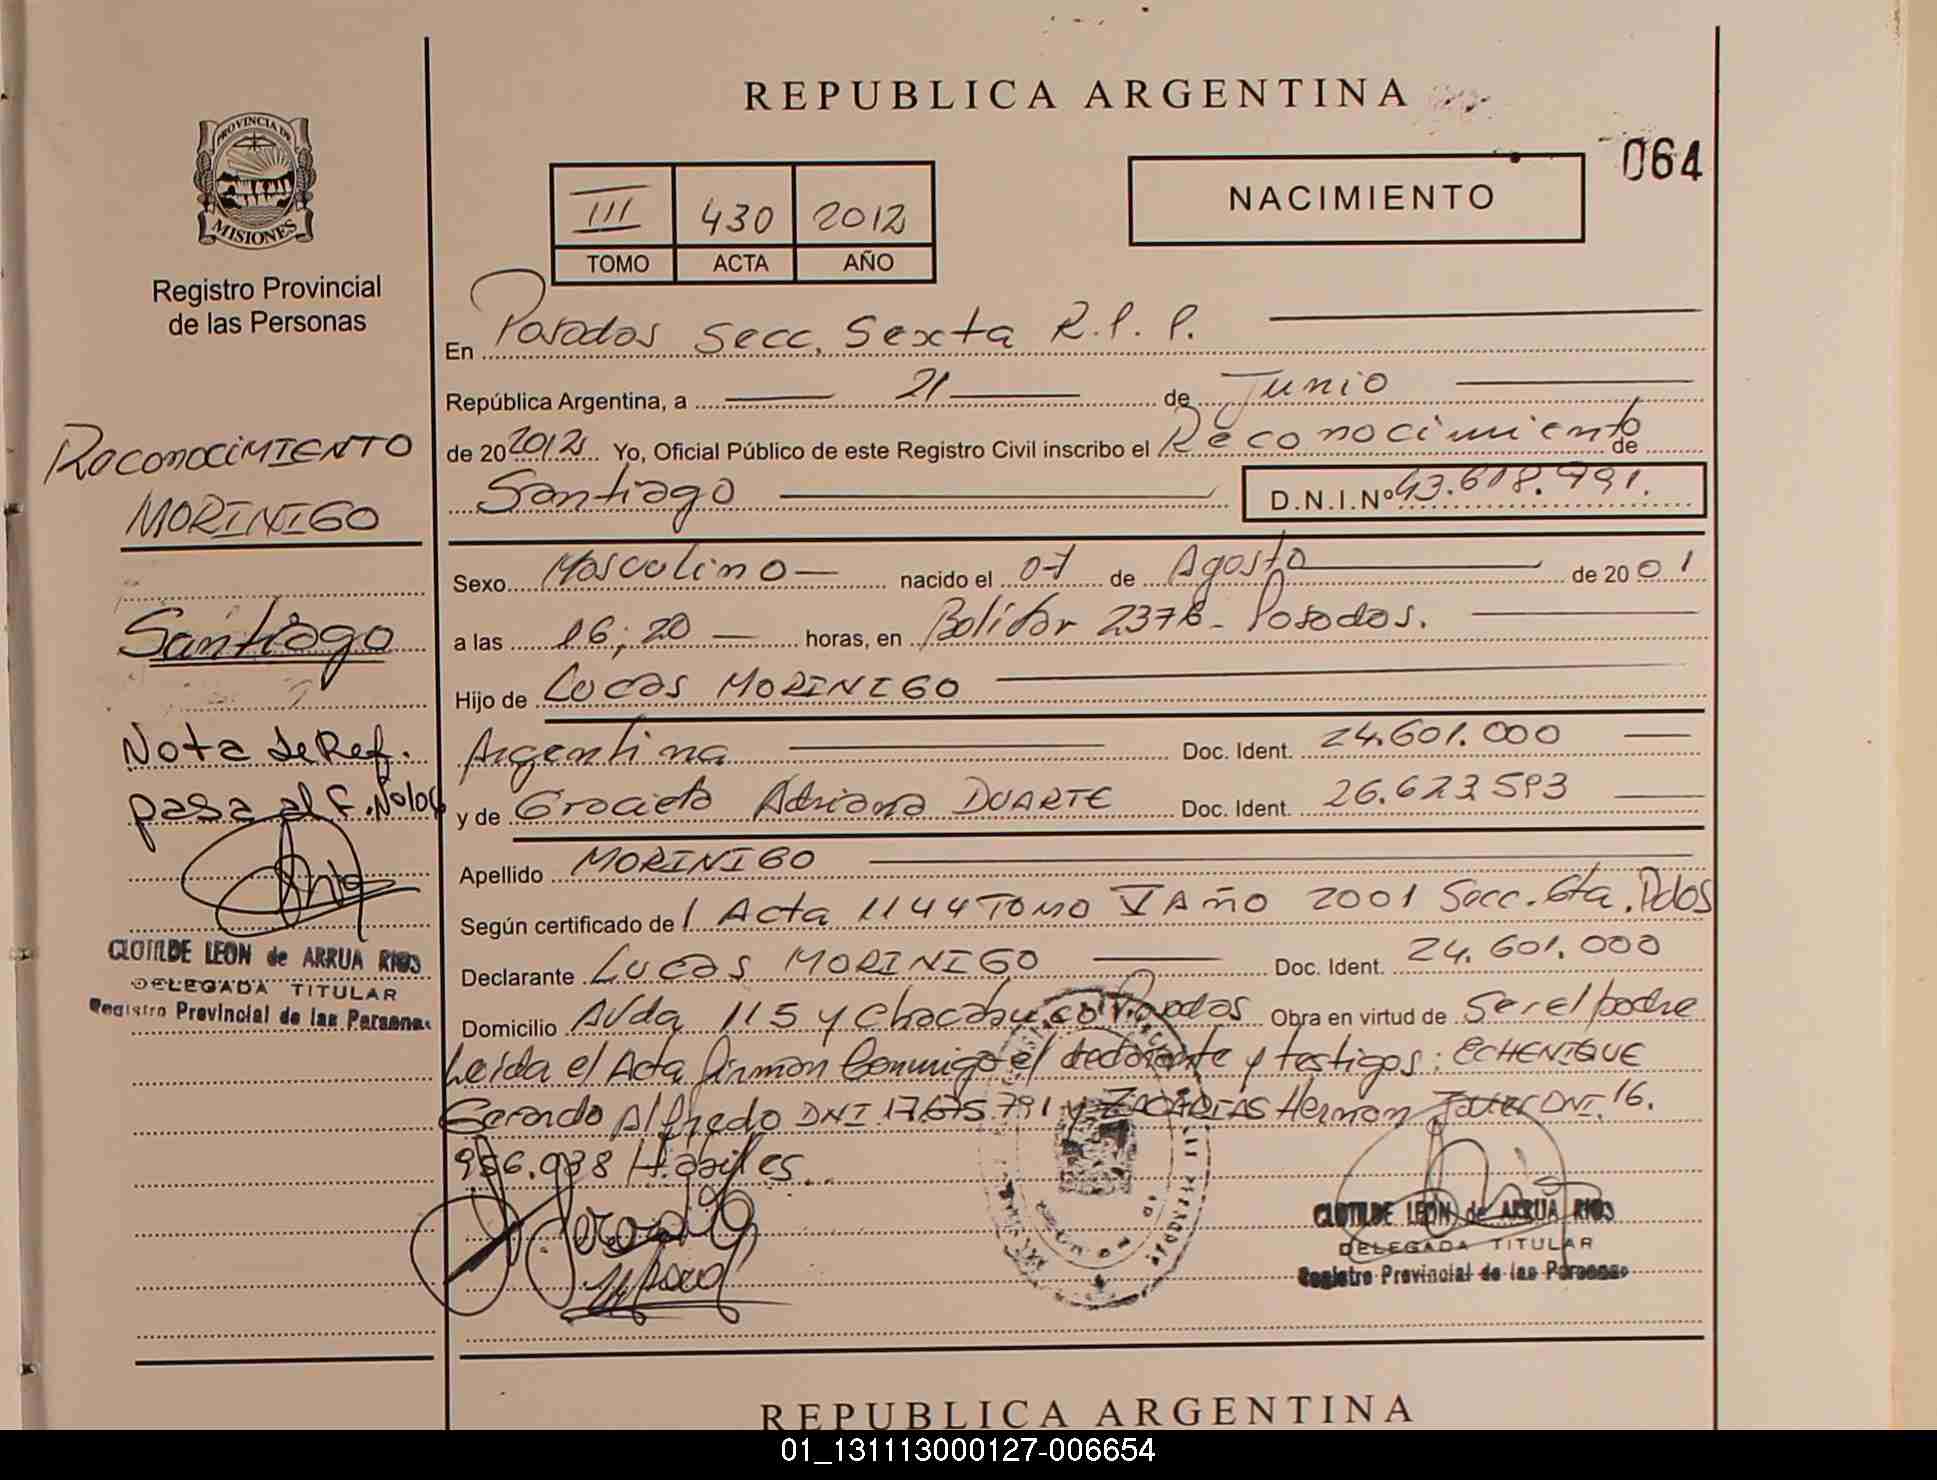 REPUBLICA ARGENTINA
064
PROVINCIA DE
MISIONES
Registro Provincial
de las Personas
III 430 2012
TOMO ACTA AÑO
NACIMIENTO
En Posadas Secc. Sexta R.P.P.
República Argentina, a 21 de Junio
de 20 2012 Yo, Oficial Público de este Registro Civil inscribo el Reconocimiento de
Santiago D.N.I.Nº 43.618.791.
Sexo Masculino nacido el 07 de Agosto de 20 01
a las 16:20 horas, en Bolívar 2376 - Posadas.
Hijo de Lucas MORINIGO
Argentina Doc. Ident. 24.601.000
y de Graciela Adriana DUARTE Doc. Ident. 26.623.593
Apellido MORINIGO
Según certificado de Acta 1144 TOMO V Año 2001 Secc. 6ta. Pdas
Declarante Lucas MORINIGO Doc. Ident. 24.601.000
Domicilio Avda 115 y Chacabuco Posadas Obra en virtud de Ser el padre
Leída el Acta firman conmigo el declarante y testigos: ECHENIQUE
Gerardo Alfredo DNI 17.675.791 y ZACARIAS Hernan Javier DNI. 16.
956.938 Habiles.
Reconocimiento
MORINIGO
Santiago
Nota de Ref.
pasa al F. Nº 106
CLOTILDE LEON de ARRUA RIOS
DELEGADA TITULAR
Registro Provincial de las Personas
CLOTILDE LEON de ARRUA RIOS
DELEGADA TITULAR
Registro Provincial de las Personas
REPUBLICA ARGENTINA
01_131113000127-006654